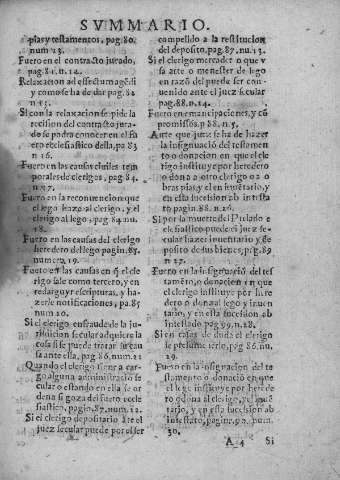 SVMMARIO.
pias y testamentos, pag. 80.
num 13.
Fuero en el contracto jurado,
pag. 81. n. 14.
Relaxacion ad effectum agēdi
y como se ha de dar pag. 82
n 15.
Si con la relaxacion se pide la
recision del contracto jura-
do se podra conocer en el fue
ro ecclesiastico della, pa 83
n 16.
Fuero en las causas ciuiles tem
porales de clerigos, pag. 84.
n 17.
Fuero en la reconuencion que
el lego haze al clerigo, y el
clerigo al lego, pag 84 nu.
18.
Fuero en las causas del clerigo
heredero del lego pagin. 85.
numero, 19.
Fuero en las causas en q̄ el cle
rigo sale como tercero, y en
redarguyr escripturas, y ha-
zerle notificaciones, pa. 85
num 20.
Si el clerigo en fraude de la ju-
ridicion secular adquiere la
cosa si se puede traer su cau
sa ante ella, pag. 86. num. 21
Quando el clerigo tiene a car-
go alguna administracio se
cular o estando en ella se or
dena si goza del fuero eccle
siastico, pagin, 87. num. 12.
Si el clerigo depositario āte el
juez secular puede por el ser
compelido a la restitucion
del deposito, pag. 87. nu. 13.
Si el clerigo mercader o que v
sa arte o menester de lego
en razō del puede ser con-
uenido ante el juez secular
pag. 88. n. 24.
Fuero en emancipaciones, y cō
promissos, p 88. n. 5.
Ante que juez se ha de hazer
la insignuació del testamen
to o donacion en que el cle
rigo instituye por heredero
o dona a otro clerigo o a o
bras pias y el en inuētario, y
en esta sucesion ab intesta
to pagin 88. n 26.
Si por la muerte del Prelado e
clesiastico puede el juez se-
cular hazer inuentario y de
posito de sus bienes, pag 89
n 27.
Fuero en la insignuació del tes
tamēto, o donacion en que
el clerigo instituye por here
dero o dona al lego y inuen
tario, y en esta sucesion ab
intestado pag 99. n. 28.
Si en casos de duda el clerigo
se presume serlo, pag 86. nu.
29.
Fuero en la insignacion del tes
tamento o donació en que
el lego instituye por herede
ro o dona al clerigo, y el inuē
tario, y en esta sucession ab
intestato, pagin. 90. num.
30.
A 4 Si